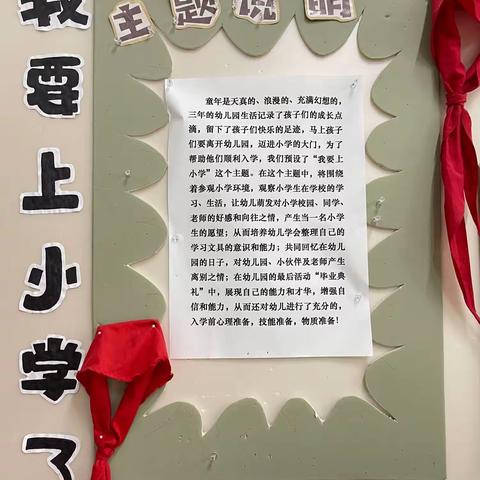 我要上小学了
主题说明
童年是天真的、浪漫的、充满幻想的，
三年的幼儿园生活记录了孩子们的成长点
滴，留下了孩子们快乐的足迹，马上孩子
们要离开幼儿园，迈进小学的大门，为了
帮助他们顺利入学，我们预设了“我要上
小学”这个主题。在这个主题中，将围绕
着参观小学环境，观察小学生在学校的学
习、生活，让幼儿萌发对小学校园、同学、
老师的好感和向往之情，产生当一名小学
生的愿望；从而培养幼儿学会整理自己的
学习文具的意识和能力；共同回忆在幼儿
园的日子，对幼儿园、小伙伴及老师产生
离别之情；在幼儿园的最后活动“毕业典
礼”中，展现自己的能力和才华，增强自
信和能力，从而还对幼儿进行了充分的，
入学前心理准备，技能准备，物质准备！